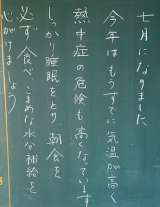 七月になりました
今年はもうすでに気温が高く
熱中症の危険も高くなっています
しっかり睡眠をとり 朝食を
必ず食べ こまめな水分補給を
心がけましょう